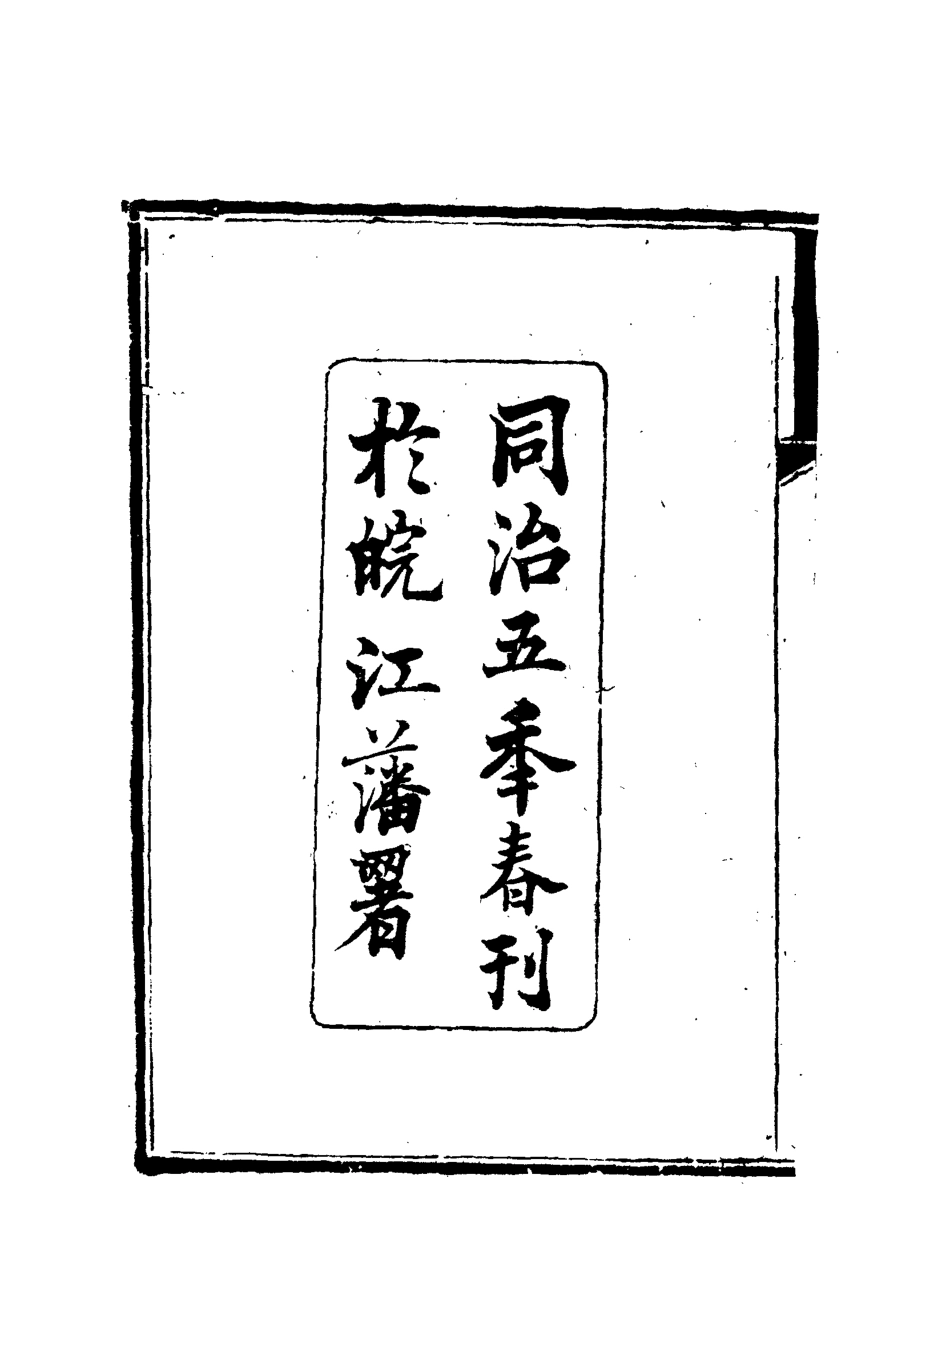 同治五秊春刊
於皖江藩署